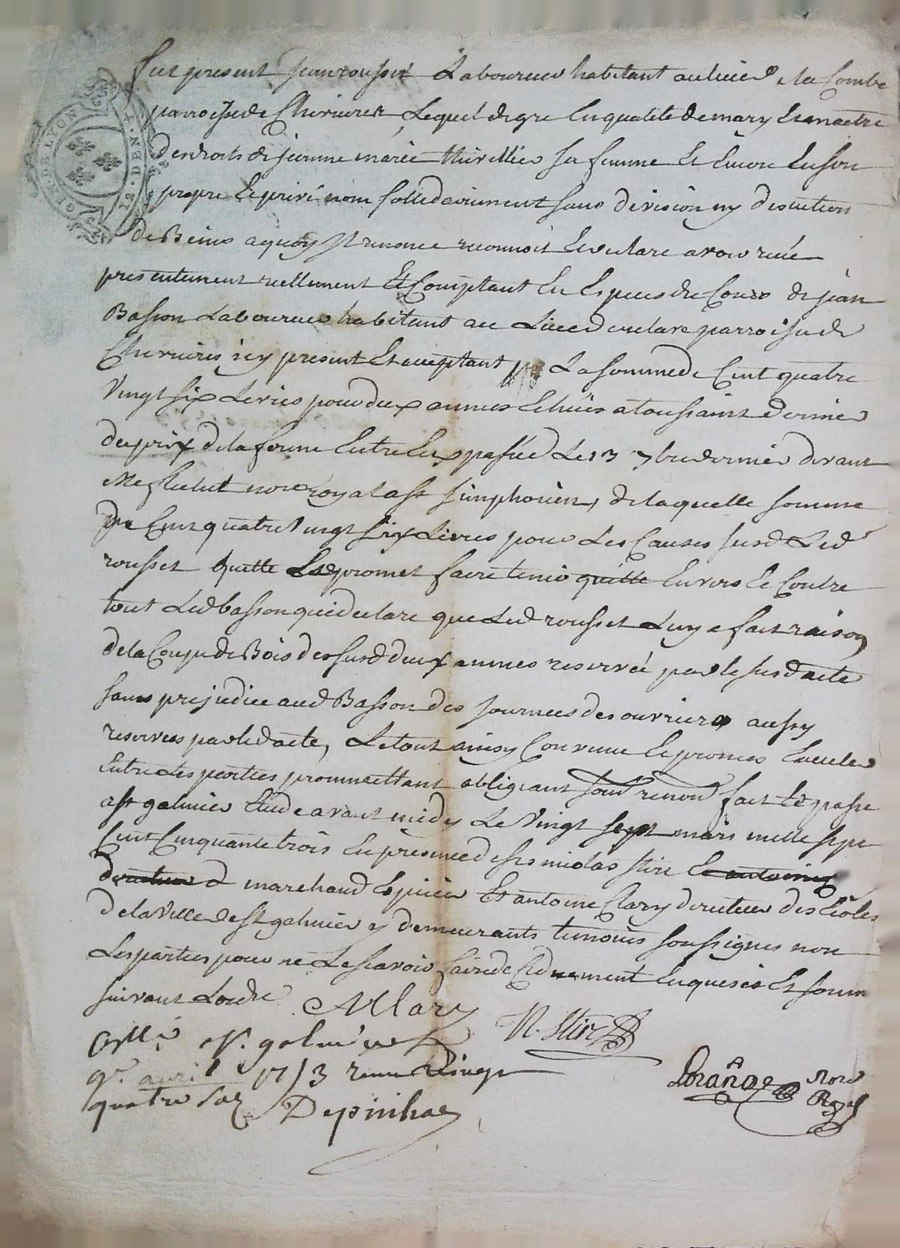 GEN. DE LYON
Fut present Jean rousset Laboureur habitant au lieu de la Combe
parroisse de Chevrieres Lequel de gre En qualité de mary Et maitre
des droits de jeanne marie thivellier sa femme Et Encore En son
propre Et privé nom sollidairement sans division ny discution
de Biens a quoy Il renonce reconnoit Et declare avoir receu
presentement reellement Et Comptant En Especes de Cours de jean
Basson Laboureur habitant au Lieu de parroisse de
Chevrieres icy present Et acceptant La somme de Cent quatre
Vingt six Livres pour deux annees Echües a toussaint dernier
du prix de la ferme Entre Eux passée Le 13 7bre dernier devant
Me not.re royal a st simphorien, de laquelle somme
de Cent quatre Vingt six Livres pour Les Causes susd Led
rousset quitte Et promet faire tenir quitte Envers Et Contre
tout Led basson qui declare que Led rousset Luy a fait raison
de la Coupe de Bois des susd deux annees reservée par le susd acte
sans prejudice aud Basson des journees des ouvriers aussy
reservees par led acte, Le tout ainsy Convenu Et promis
Entre Les parties promettant obligeant soum renon fait Et passé
a st galmier Etude avant midy Le Vingt sept mars mille sept
Cent Cinquante trois En presence de srs nicolas stire Et antoine
marchand Epicier Et antoine Clary directeur des Ecoles
de la Ville de st galmier y demeurants temoins soussignés non
Les parties pour ne Le scavoir faire de Ce Enquises Et somm
suivant Lordre A Clary
N. Stire
Cllé a St. galmier Le
9e avril 1753 receu Vingt
quatre sols Depinhac
Lorange Nore
Royal